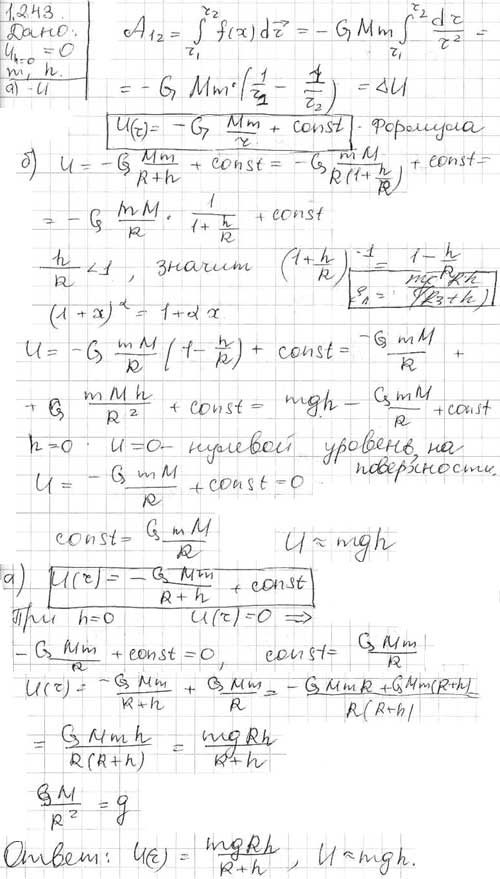 1.243.
Дано:
U_{h=0} = 0
m, h.
а) -U
A₁₂ = ∫_{r₁}^{r₂} f(x) dr⃗ = - G Mm ∫_{r₁}^{r₂} dr/r² =
= - G Mm · (1/r₁ - 1/r₂) = ΔU
U(r) = - G Mm/r + const · Формула
б) U = - G Mm/(R+h) + const = - G mM/(R(1+h/R)) + const =
= - G mM/R · 1/(1+h/R) + const
h/R < 1, значит (1+h/R)^{-1} = 1 - h/R
(1+x)^α = 1+αx
U = - G mM/R (1 - h/R) + const = -G mM/R +
+ G mMh/R² + const = mgh - GmM/R + const
h=0 · U=0 - нулевой уровень на
поверхности.
U = - G mM/R + const = 0.
const = G mM/R U ≈ mgh
а) U(r) = - G Mm/(R+h) + const
При h=0 U(r)=0 ⇒
- G Mm/R + const = 0, const = G Mm/R
U(r) = -G Mm/(R+h) + G Mm/R = (-G MmR + GMm(R+h))/(R(R+h))
= G Mmh/(R(R+h)) = mgRh/(R+h)
GM/R² = g
Ответ: U(r) = mgRh/(R+h), U ≈ mgh.